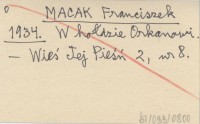 MACAK Franciszek
1934. W hołdzie Orkanowi.
— Wieś Jej Pieśń 2, nr 8.